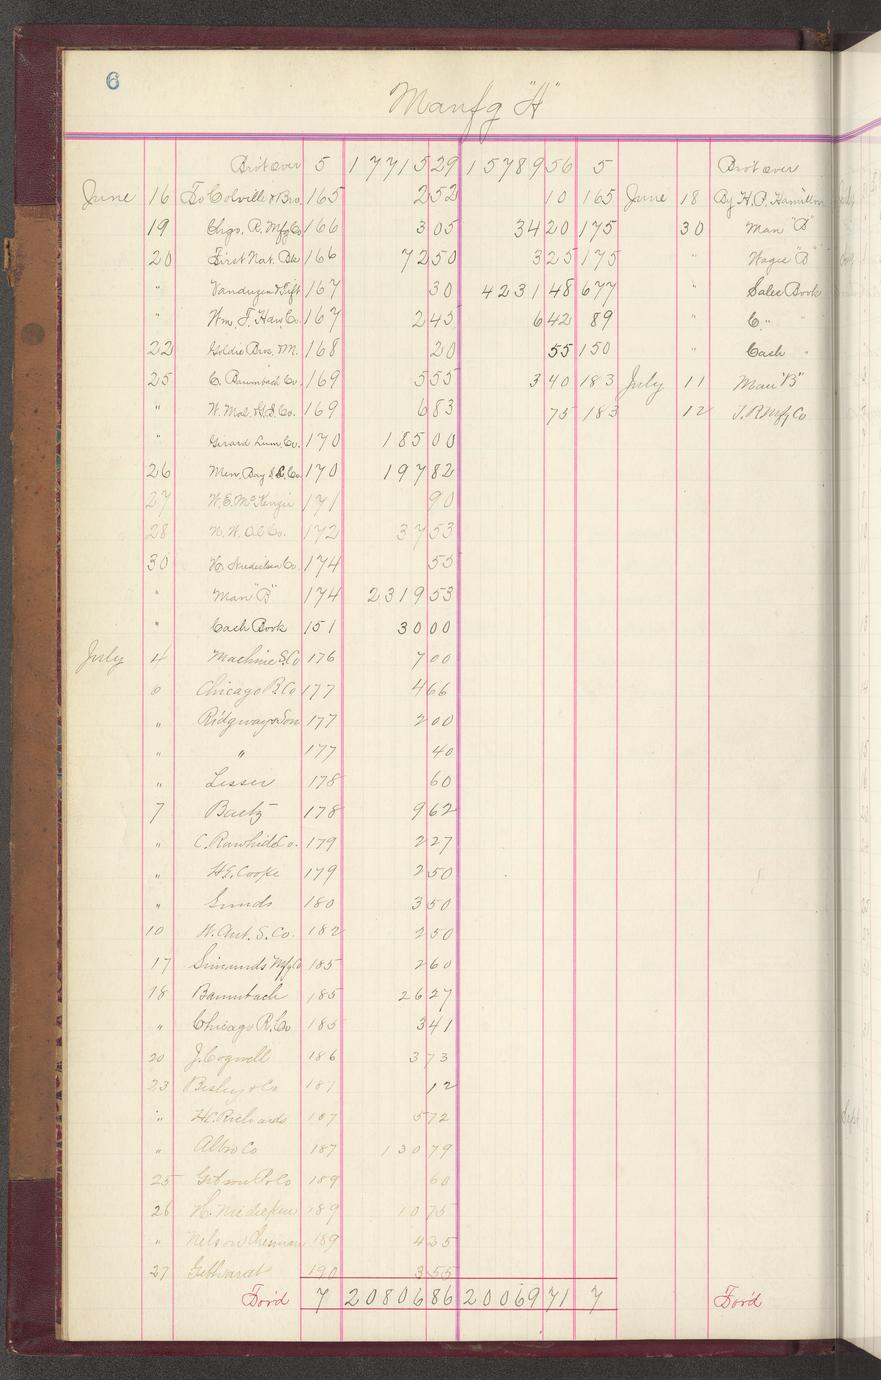 6
Manfg "A"
Bro't over 5 17715 29 15789 56 5 Bro't over
June 16 To Colville & Bro. 165 2 52 10 165 June 18 By H. P. Hamilton
19 Chgo. R. Mfg Co 166 3 05 34 20 175 30 Man "B"
20 First Nat. Bk 166 72 50 3 25 175 " Wages "B"
" Vanduzen & Tift 167 30 4231 48 677 " Sales Book
" Wm. F. Haw. Co. 167 2 45 6 42 89 " C. " "
22 Goldie Bros. & M. 168 20 55 150 " Cash "
25 C. Baumbach Co. 169 5 55 3 40 183 July 11 Man "B"
" W. Mal. & G. I. Co. 169 6 83 75 183 12 J. R Mfg Co
" Girard Lum. Co. 170 185 00
26 Men. Bay S. & C. Co. 170 197 82
27 W. E. McKenzie 171 90
28 N. W. Oil Co. 172 37 53
30 Co. 174 55
" Man "B" 174 2319 53
" Cash Book 151 30 00
July 4 Machine S. Co 176 7 00
6 Chicago R. Co 177 4 66
" Ridgway & Son 177 2 00
" " 177 40
" Lesser 178 60
7 Baetz 178 9 62
" C. Rawhide Co. 179 2 27
" H. S. Cooke 179 2 50
" Gunds 180 3 50
10 W. Aut. S. Co. 182 2 50
17 Simunds Mfg Co 185 2 60
18 Baumbach 185 26 27
" Chicago R. Co 185 3 41
20 J. Cogwell 186 3 73
23 Bisley & Co 187 12
" H C. Richards 187 5 72
" Albro Co 187 130 79
25 Gibson P. Co 189 60
26 189 10 75
" Nelson 189 4 35
27 Gebhardt 190 3 55
For'd 7 20806 86 20069 71 7 For'd